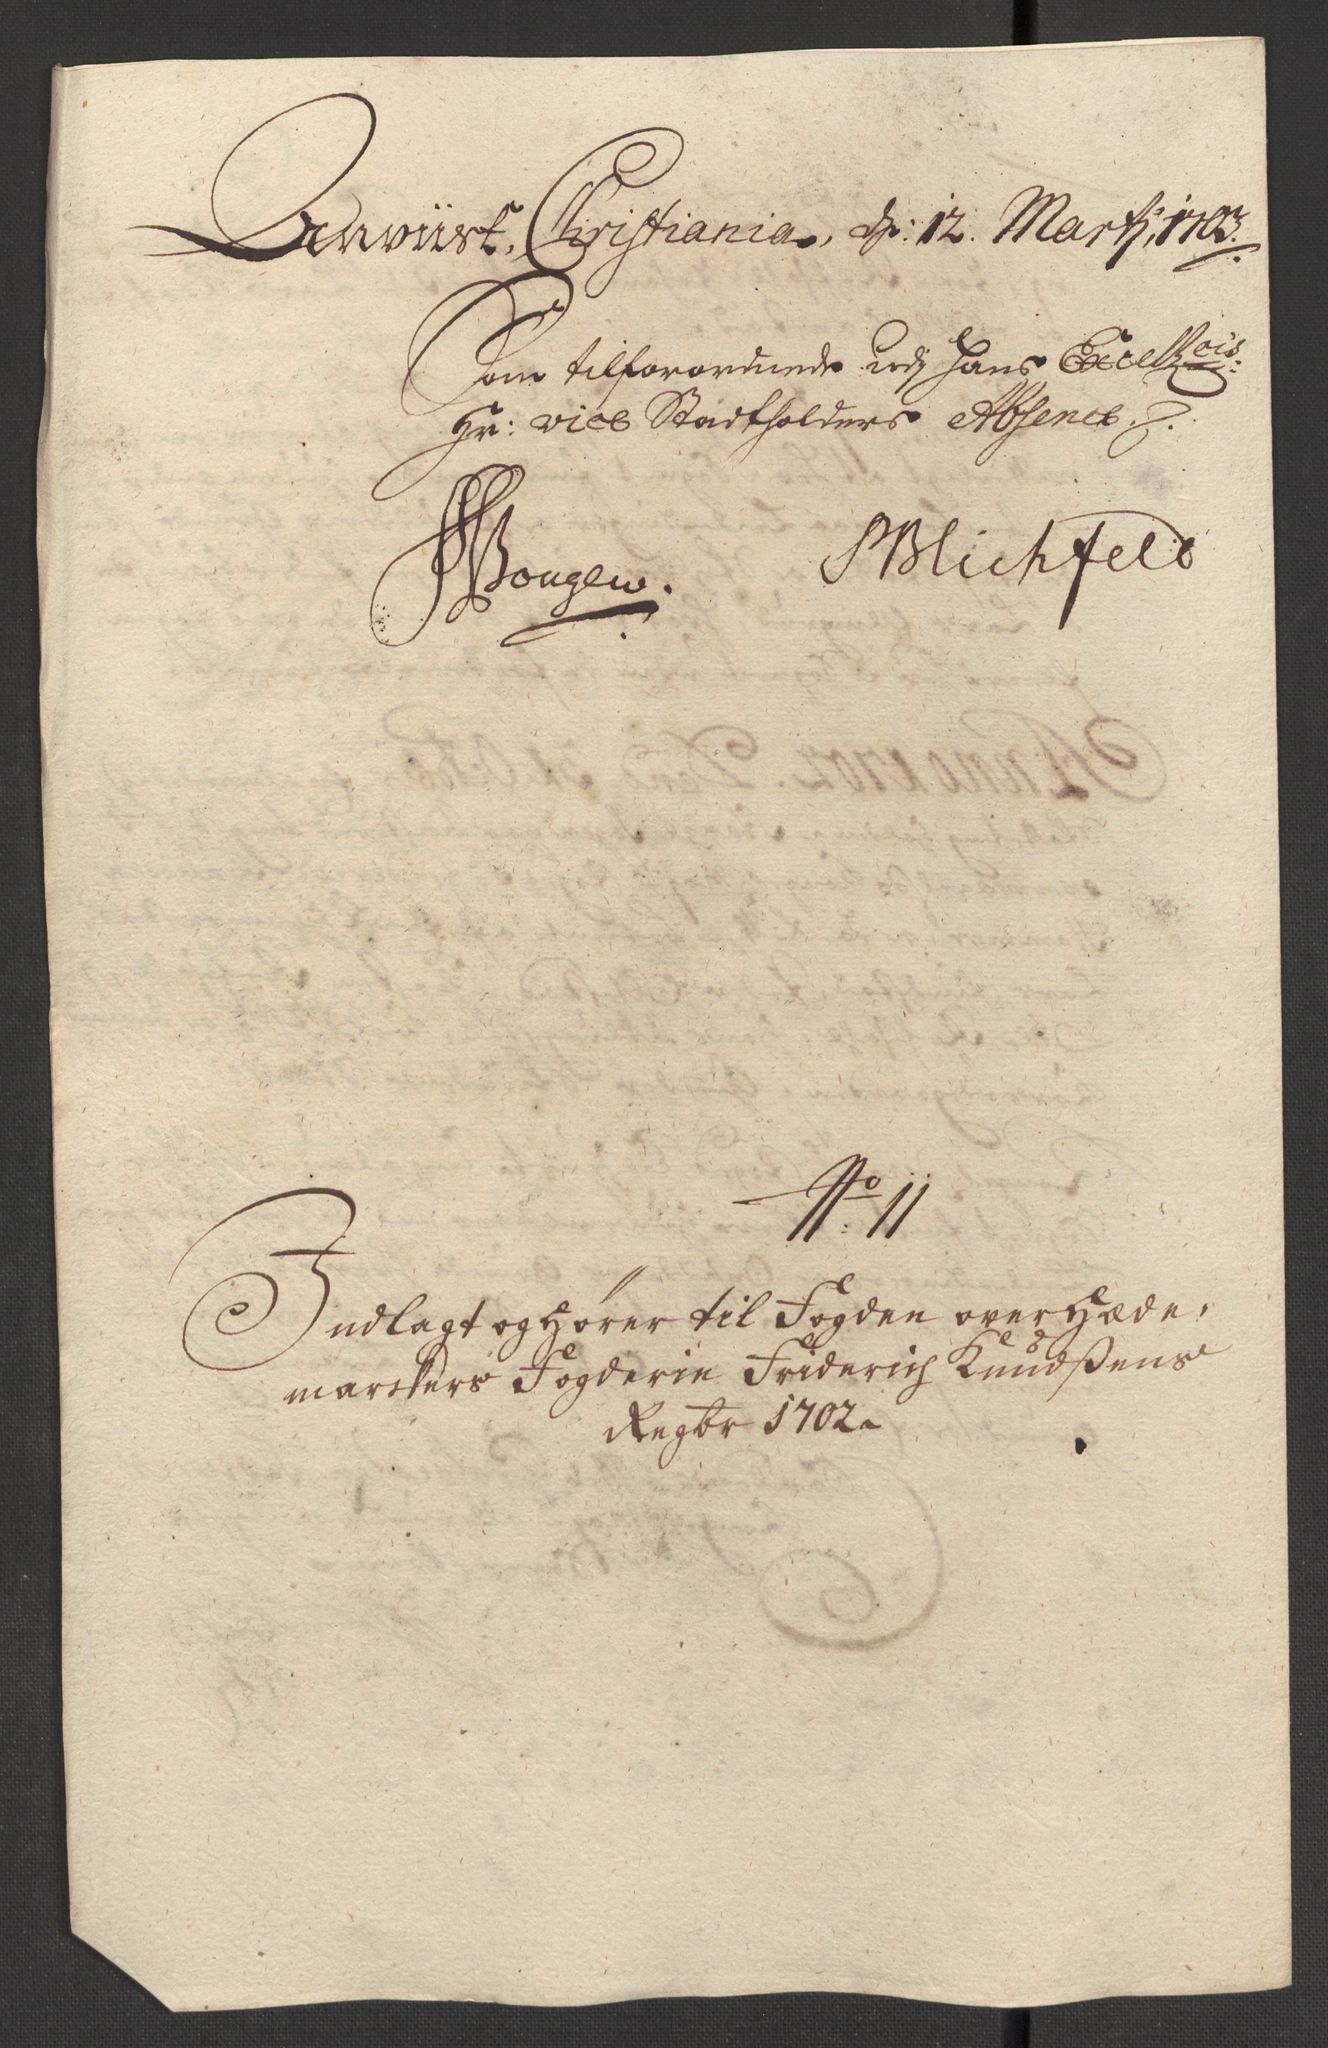 Anviist, Christiania, d: 12. Martÿ, 1703.
Som tilforordnede udj hans Excellois:
Hr: vice Stadtholders Absence.
Bongew.
SBlichfeld
No: 11
Indlagt og hører til Fogden over Hede,
marckers Fogderie Friderich Knudßens
Regbr 1702